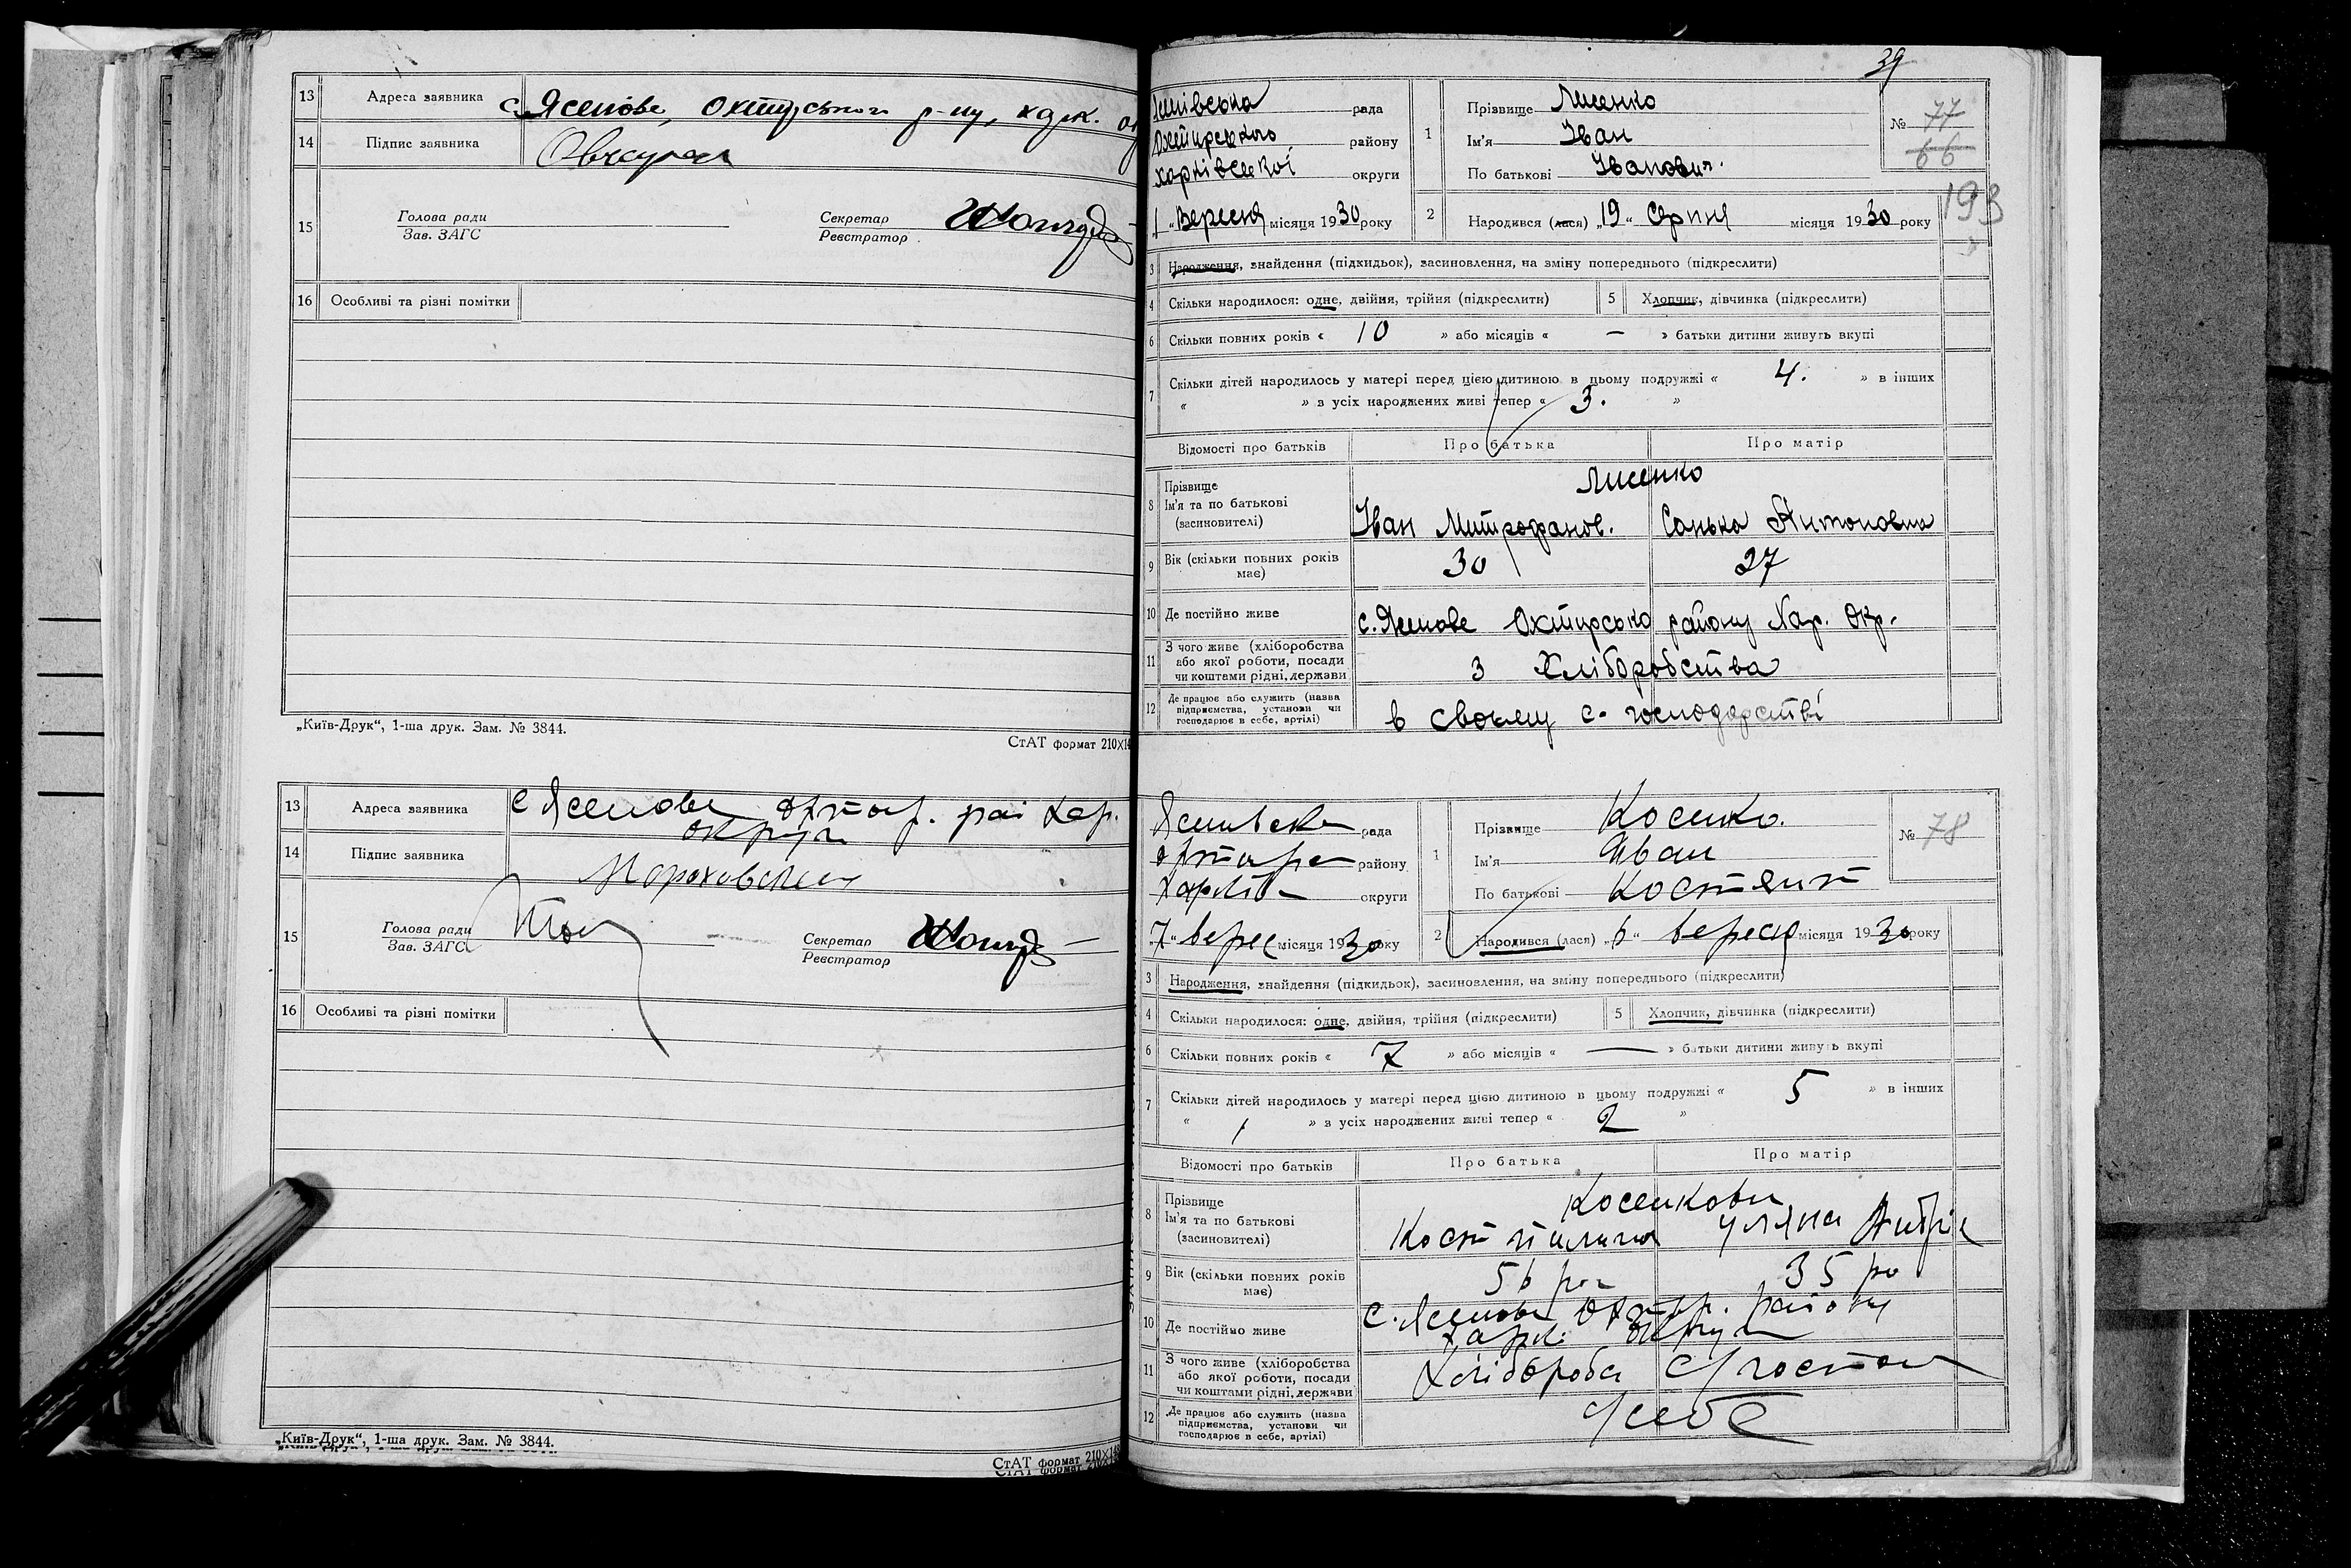 13 Адреса заявника с. Ясенове, Охтирського р-ну, харк.
14 Підпис заявника
15 Голова ради
Зав. ЗАГС
Секретар
Реєстратор
16 Особливі та різні помітки
„Київ-Друк“, 1-ша друк. Зам. № 3844.
СтАТ формат 210×14
13 Адреса заявника с Ясенове Охтир. рай Хар.
округи
14 Підпис заявника
15 Голова ради
Зав. ЗАГС
Секретар
Реєстратор
16 Особливі та різні помітки
„Київ-Друк“, 1-ша друк. Зам. № 3844.
СтАТ формат 210×148
39
рада
Охтирського району
харківської округи
1 „Вересня місяця 1930 року
1 Прізвище Лисенко
Ім'я Іван
По батькові Іванович.
№ 77
66
193
2 Народився (лася) „19“ Серпня місяця 1930 року
3 Народження, знайдення (підкидьок), засиновлення, на зміну попереднього (підкреслити)
4 Скільки народилося: одне, двійня, трійня (підкреслити) 5 Хлопчик, дівчинка (підкреслити)
6 Скільки повних років « 10 » або місяців « — » батьки дитини живуть вкупі
7 Скільки дітей народилось у матері перед цією дитиною в цьому подружжі « 4. » в інших
« » з усіх народжених живі тепер « 3. »
Відомості про батьків Про батька Про матір
8 Прізвище
Ім'я та по батькові
(засиновителі)
Лисенко
Іван Митрофанов. Санька Антоновна
9 Вік (скільки повних років має) 30 27
10 Де постійно живе с. Ясенове Охтирсько району Хар. Окр.
11 З чого живе (хліборобства
або якої роботи, посади
чи коштами рідні, держави
З Хліборобства
12 Де працює або служить (назва
підприємства, установи чи
господарює в себе, артілі)
в своєму с. господарстві
рада
району
округи
„7“ верес місяця 1930 року
1 Прізвище Косенко.
Ім'я Іван
По батькові Костянт
№ 78
2 Народився (лася) „6“ вересня місяця 1930 року
3 Народження, знайдення (підкидьок), засиновлення, на зміну попереднього (підкреслити)
4 Скільки народилося: одне, двійня, трійня (підкреслити) 5 Хлопчик, дівчинка (підкреслити)
6 Скільки повних років « 7 » або місяців « — » батьки дитини живуть вкупі
7 Скільки дітей народилось у матері перед цією дитиною в цьому подружжі « 5 » в інших
« 1 » з усіх народжених живі тепер « 2 »
Відомості про батьків Про батька Про матір
8 Прізвище
Ім'я та по батькові
(засиновителі)
Косенкови
Кост Уляна
9 Вік (скільки повних років має) 56 35
10 Де постійно живе с. Ясенове Охтир. району
харк. округи
11 З чого живе (хліборобства
або якої роботи, посади
чи коштами рідні, держави
Хлібороба
12 Де працює або служить (назва
підприємства, установи чи
господарює в себе, артілі)
у себе